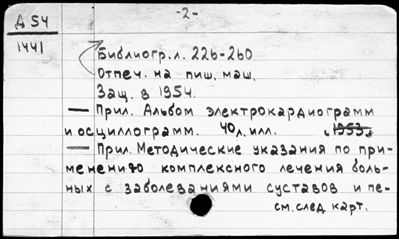 -2-
Д 54
1441
Библиогр. л. 226-260
Отпеч. на пиш. маш.
Защ. в 1954.
— Прил. Альбом электрокардиограмм
и осциллограмм. 40 л. илл. 1953.
— Прил. Методические указания по при-
менению комплексного лечения боль-
ных с заболеваниями суставов и пе-
см. след карт.